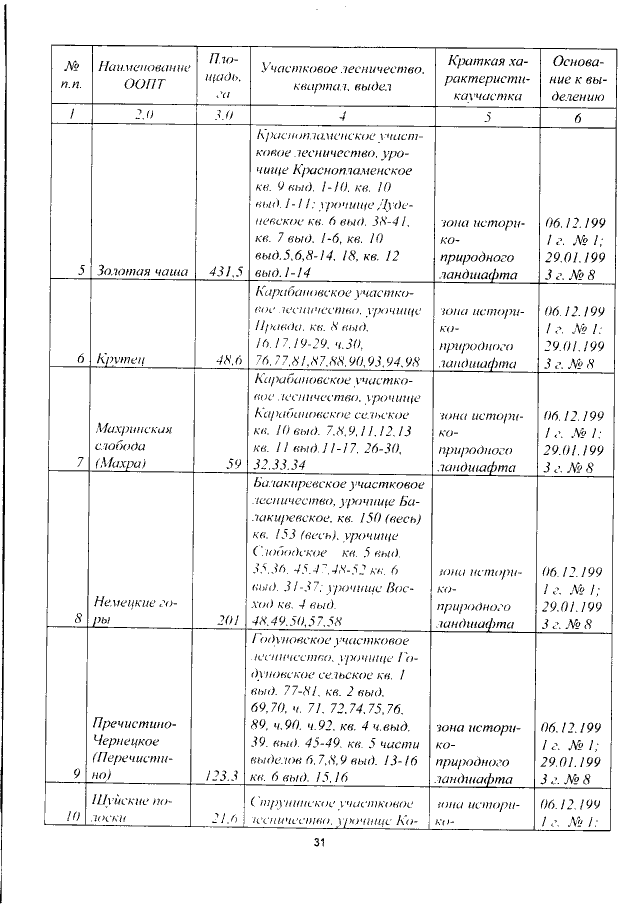 № п.п.
Наименование ООПТ
Пло-
щадь,
га
Участковое лесничество,
квартал, выдел
Краткая ха-
рактеристи-
каучастка
Основа-
ние к вы-
делению
1 2,0 3,0 4 5 6
Краснопламенское участ-
ковое лесничество, уро-
чище Краснопламенское
кв. 9 выд. 1-10, кв. 10
выд.1-11; урочище Дуде-
невское кв. 6 выд. 38-41,
кв. 7 выд. 1-6, кв. 10
выд.5,6,8-14, 18, кв. 12
выд.1-14
5 Золотая чаша 431,5
зона истори-
ко-
природного
ландшафта
06.12.199
1 г. № 1;
29.01.199
3 г. № 8
Карабановское участко-
вое лесничество, урочище
Правда, кв. 8 выд.
16,17,19-29, ч.30,
76,77,81,87,88,90,93,94,98
6 Крутец 48,6
зона истори-
ко-
природного
ландшафта
06.12.199
1 г. № 1;
29.01.199
3 г. № 8
Карабановское участко-
вое лесничество, урочище
Карабановское сельское
кв. 10 выд. 7,8,9,11,12,13
кв. 11 выд.11-17, 26-30,
32,33,34
Махринская
слобода
7 (Махра) 59
зона истори-
ко-
природного
ландшафта
06.12.199
1 г. № 1;
29.01.199
3 г. № 8
Балакиревское участковое
лесничество, урочище Ба-
лакиревское, кв. 150 (весь)
кв. 153 (весь), урочище
Слободское кв. 5 выд.
35,36, 45,47,48-52 кв. 6
выд. 31-37; урочище Вос-
ход кв. 4 выд.
48,49,50,57,58
Немецкие го-
8 ры 201
зона истори-
ко-
природного
ландшафта
06.12.199
1 г. № 1;
29.01.199
3 г. № 8
Годуновское участковое
лесничество, урочище Го-
дуновское сельское кв. 1
выд. 77-81, кв. 2 выд.
69,70, ч. 71, 72,74,75,76,
89, ч.90, ч.92, кв. 4 ч.выд.
39, выд. 45-49, кв. 5 части
выделов 6,7,8,9 выд. 13-16
кв. 6 выд. 15,16
Пречистино-
Чернецкое
(Перечисти-
9 но) 123,3
зона истори-
ко-
природного
ландшафта
06.12.199
1 г. № 1;
29.01.199
3 г. № 8
Шуйские по-
10 лоски 21,6
Струнинское участковое
лесничество, урочище Ко-
зона истори-
ко-
06.12.199
1 г. № 1;
31